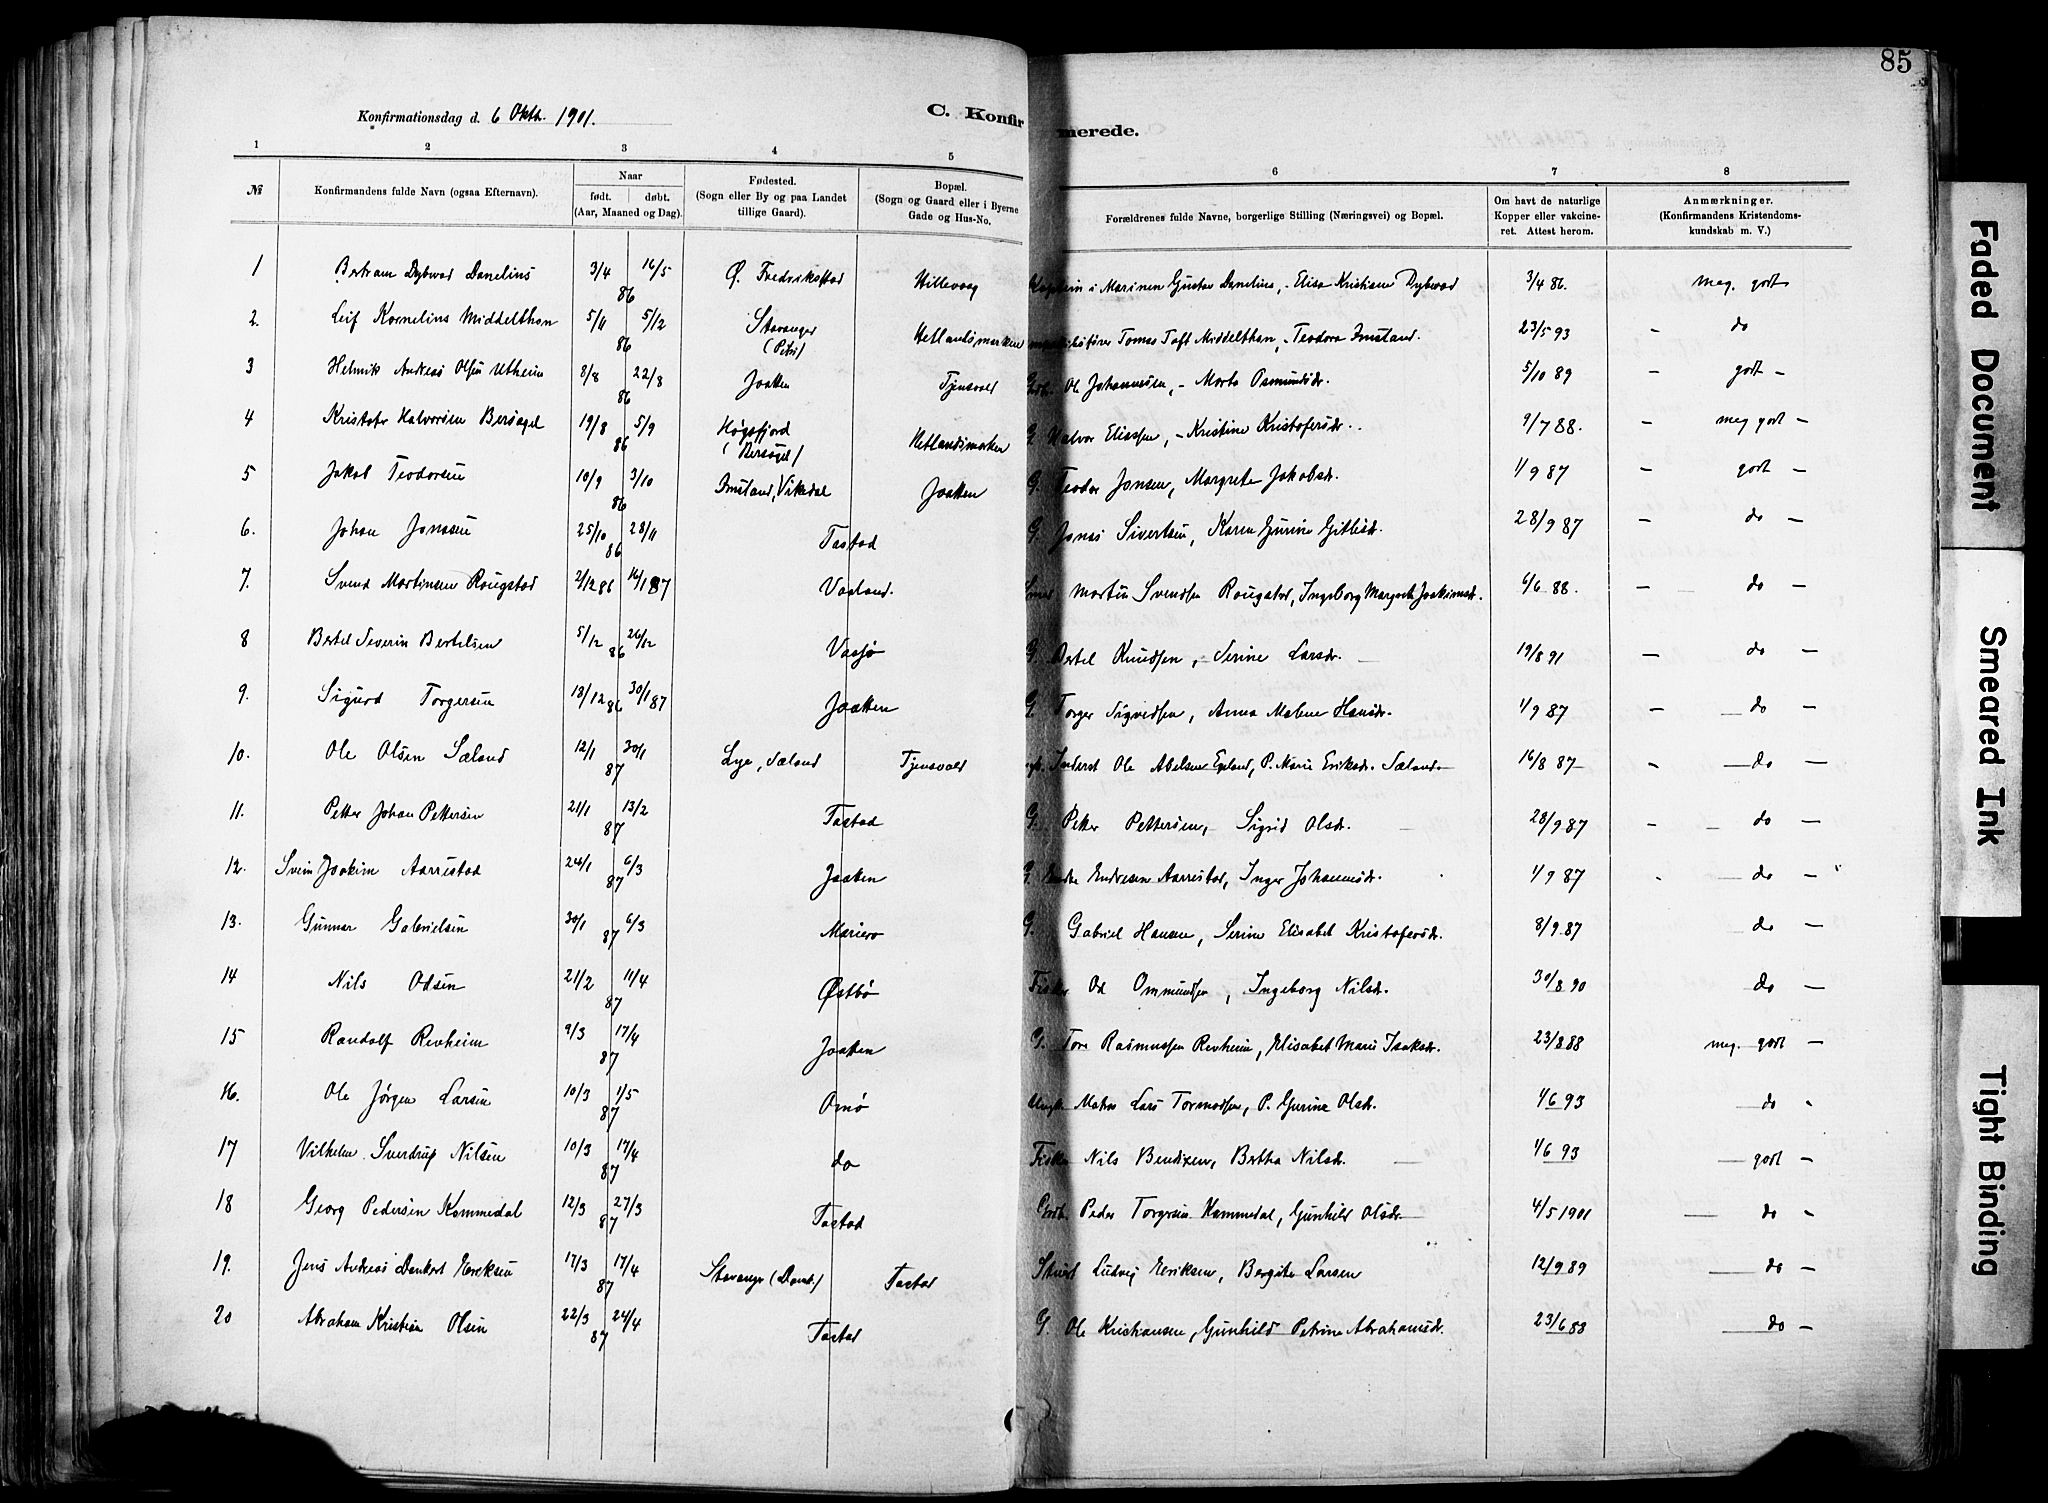 85
Konfirmationsdag d. 6 Oktb. 1901.
C. Konfirmerede.
1 2 3 4 5 6 7 8
№ Konfirmandens fulde Navn (ogsaa Efternavn). Naar født. døbt. (Aar, Maaned og Dag). Fødested. (Sogn eller By og paa Landet tillige Gaard). Bopæl. (Sogn og Gaard eller i Byerne Gade og Hus-No. Forældrenes fulde Navne, borgerlige Stilling (Næringsvei) og Bopæl. Om havt de naturlige Kopper eller vakcineret. Attest herom. Anmærkninger. (Konfirmandens Kristendomskundskab m. V.)
1 Bertram Dybwad Danelius 3/4 16/5 86 Ø. Fredrikstad Hillevaag Kaptein i Marinen Gustav Danelius, - Elisa Kristiane Dybwad 3/4 86. meg. godt
2. Leif Kornelius Middelthon 5/11 5/12 86 Stavanger (Petri) Hetlandsmarken Tomas Toft Middelthon, - Teodora Imsland. 23/5 93 - do
3 Helmik Andreas Olsen Utheim 8/8 22/8 86 Jaatten Tjensvold Ole Johannesen, - Marta Osmundsdr. 5/10 89 - godt -
4 Kristofer Halvorsen Bersagel 19/8 5/9 86 Høgsfjord (Bersagel) Hetlandsmarken G. Halvor Eliassen, - Kristine Kristofersdr. 9/7 88. - meg godt -
5 Jakob Teodorsen 10/9 3/10 86 Imsland, Vikedal Jaatten G. Teodor Jonsen, Margrete Jakobsdr. 1/9 87 - godt -
6. Johan Jonasen 25/10 28/11 86 Tastad G. Jonas Sivertsen, Karen Gurine Gitlesdr. 28/9 87 - do -
7. Svend Martinsen Rougstad 2/12 86 16/1 87 Vaaland. Martin Svendsen Rougstad, Ingeborg Margrete Joakimsdr. 6/6 88. - do -
8 Bertel Severin Bertelsen 5/12 26/12 86 Vasjø G. Bertel Knudsen, Serine Larsdr. 19/8 91 - do -
9. Sigurd Torgersen 18/12 86 30/1 87 Jaatten G. Torger Sigvedsen, Anna Malene Hansdr. 1/9 87 - do -
10. Ole Olsen Sæland 12/1 30/1 87 Lye, Sæland Tjensvold Inderst Ole Abelsen Egeland, P. Marie Eriksdr. Sæland 16/8 87 - do -
11. Petter Johan Pettersen 21/1 13/2 87 Tastad G. Petter Pettersen, Sigrid Olsdr. 28/9 87 - do -
12. Svein Joakim Aarrestad 24/1 6/3 87 Jaatten G. Endre Endresen Aarrestad, Inger Johannesdr. 1/9 87 - do -
13. Gunnar Gabrielsen 30/1 6/3 87 Mariero G. Gabriel Hansen, Serine Elisabet Kristofersdr. 8/9.87 do -
14 Nils Odsen 21/2 11/4 87 Østbø Fisker Od Ommundsen, Ingeborg Nilsdr. 30/8 90 do -
15 Randolf Revheim 9/3 17/4 87 Jaatten G. Tore Rasmussen Revheim, Elisabet Marie Isaksdr. 23/8 88 meg. godt -
16. Ole Jørgen Larsen 10/3 1/5 87 Omø Ungk. Matros Lars Tormodsen, P. Gurine Olsdr. 1/6 93 do
17 Vilhelm Sverdrup Nilsen 10/3 17/4 87 do Fisker Nils Bendixen, Bertha Nilsdr. 1/6 93 godt -
18 Georg Pedersen Kommedal 12/3 27/3 87 Tastad Peder Torgersen Kommedal, Gunhild Olsdr. 4/5 1901 do -
19. Jens Andreas Dankert Eriksen 17/3 17/4 87 Stavanger (Domk.) Tastad Ludvig Eriksen, Bergite Larsen 12/9 89 do -
20 Abraham Kristian Olsen 22/3 24/4 87 Tastad G. Ole Kristiansen, Gunhild Petrine Abrahamsdr. 23/6 83 do -
Faded Document
Smeared Ink
Tight Binding